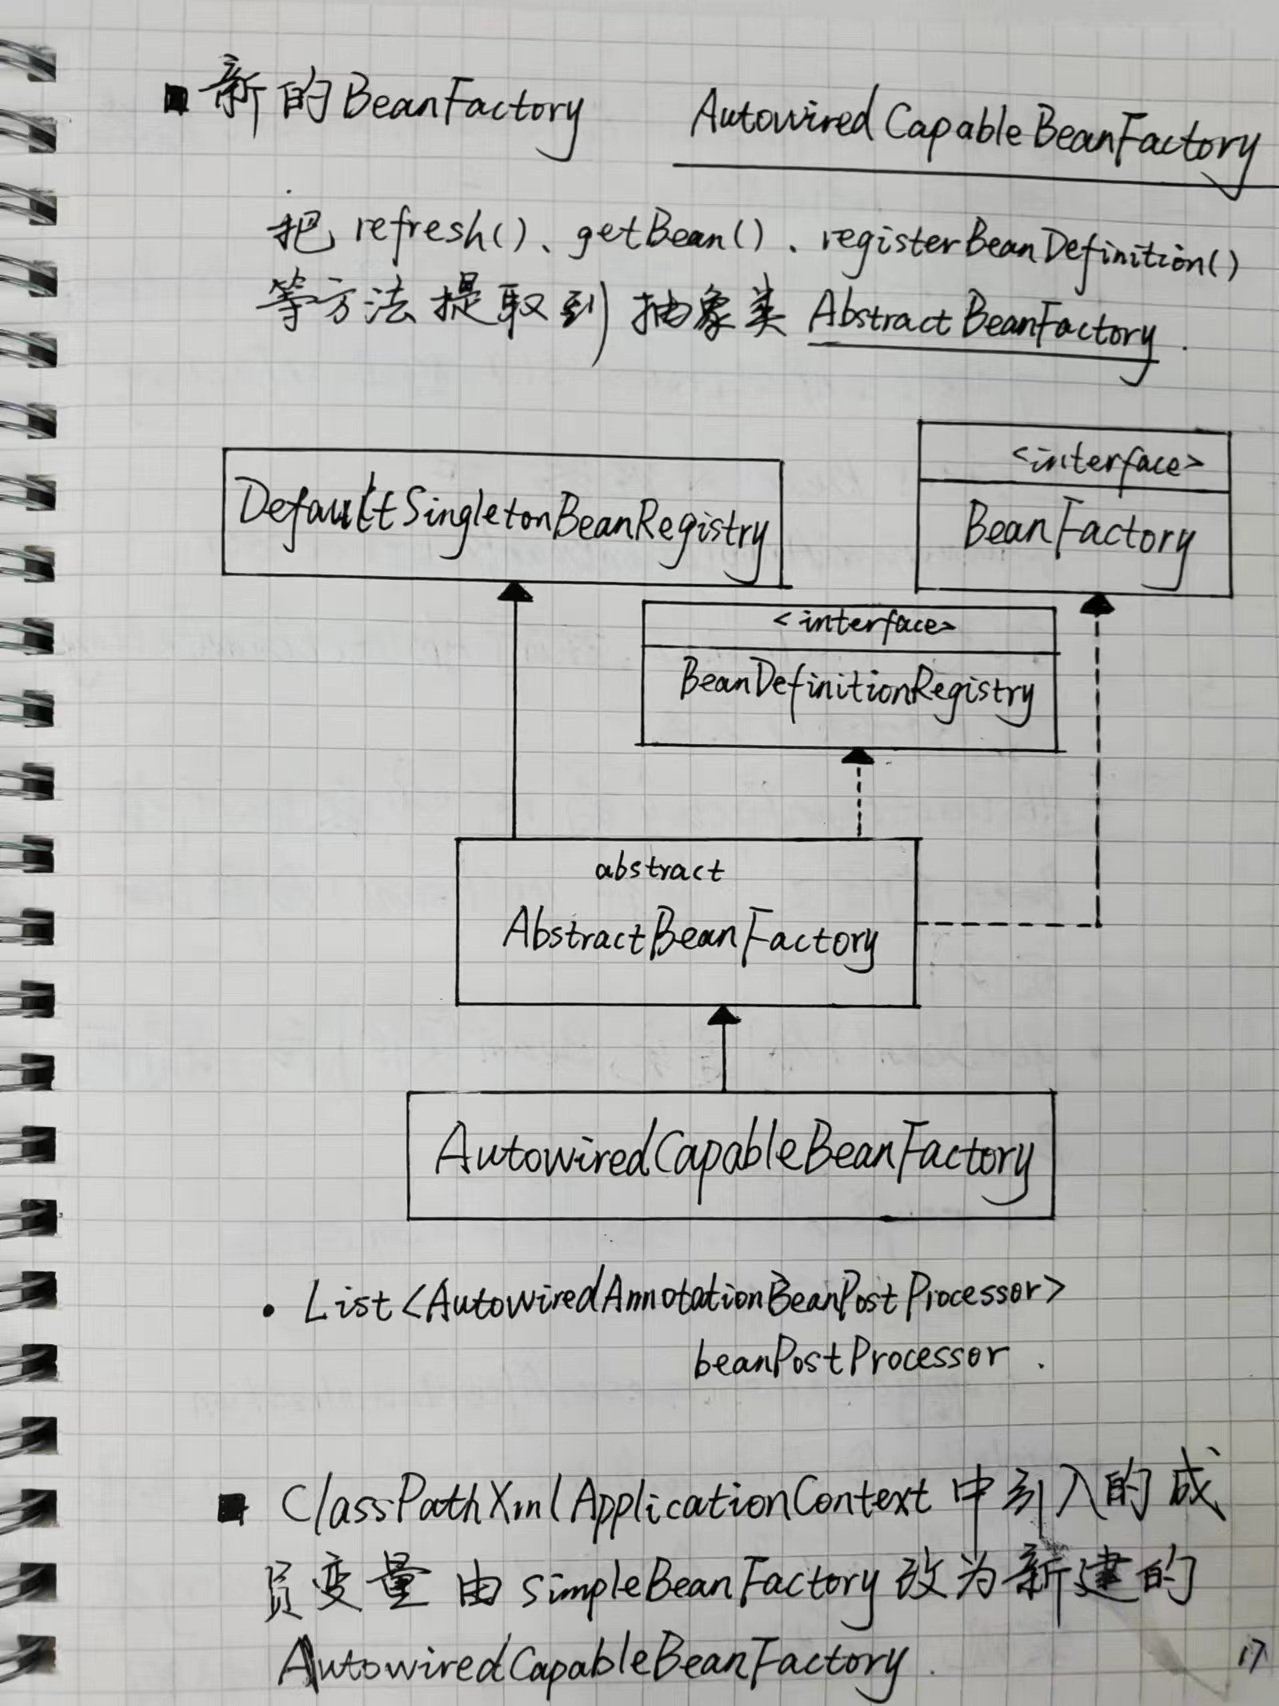 新的BeanFactory AutowiredCapableBeanFactory
把 refresh()、getBean()、registerBeanDefinition()
等方法提取到 抽象类 AbstractBeanFactory.
DefaultSingletonBeanRegistry
<interface>
BeanFactory
<interface>
BeanDefinitionRegistry
abstract
AbstractBeanFactory
AutowiredCapableBeanFactory
• List<AutowiredAnnotationBeanPostProcessor>
beanPostProcessor.
ClassPathXmlApplicationContext 中引入的成
员变量 由 simpleBeanFactory 改为新建的
AutowiredCapableBeanFactory.
17